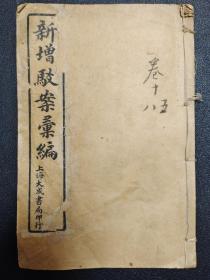 新增駁案彙編
上海大成書局印行
卷十五
八